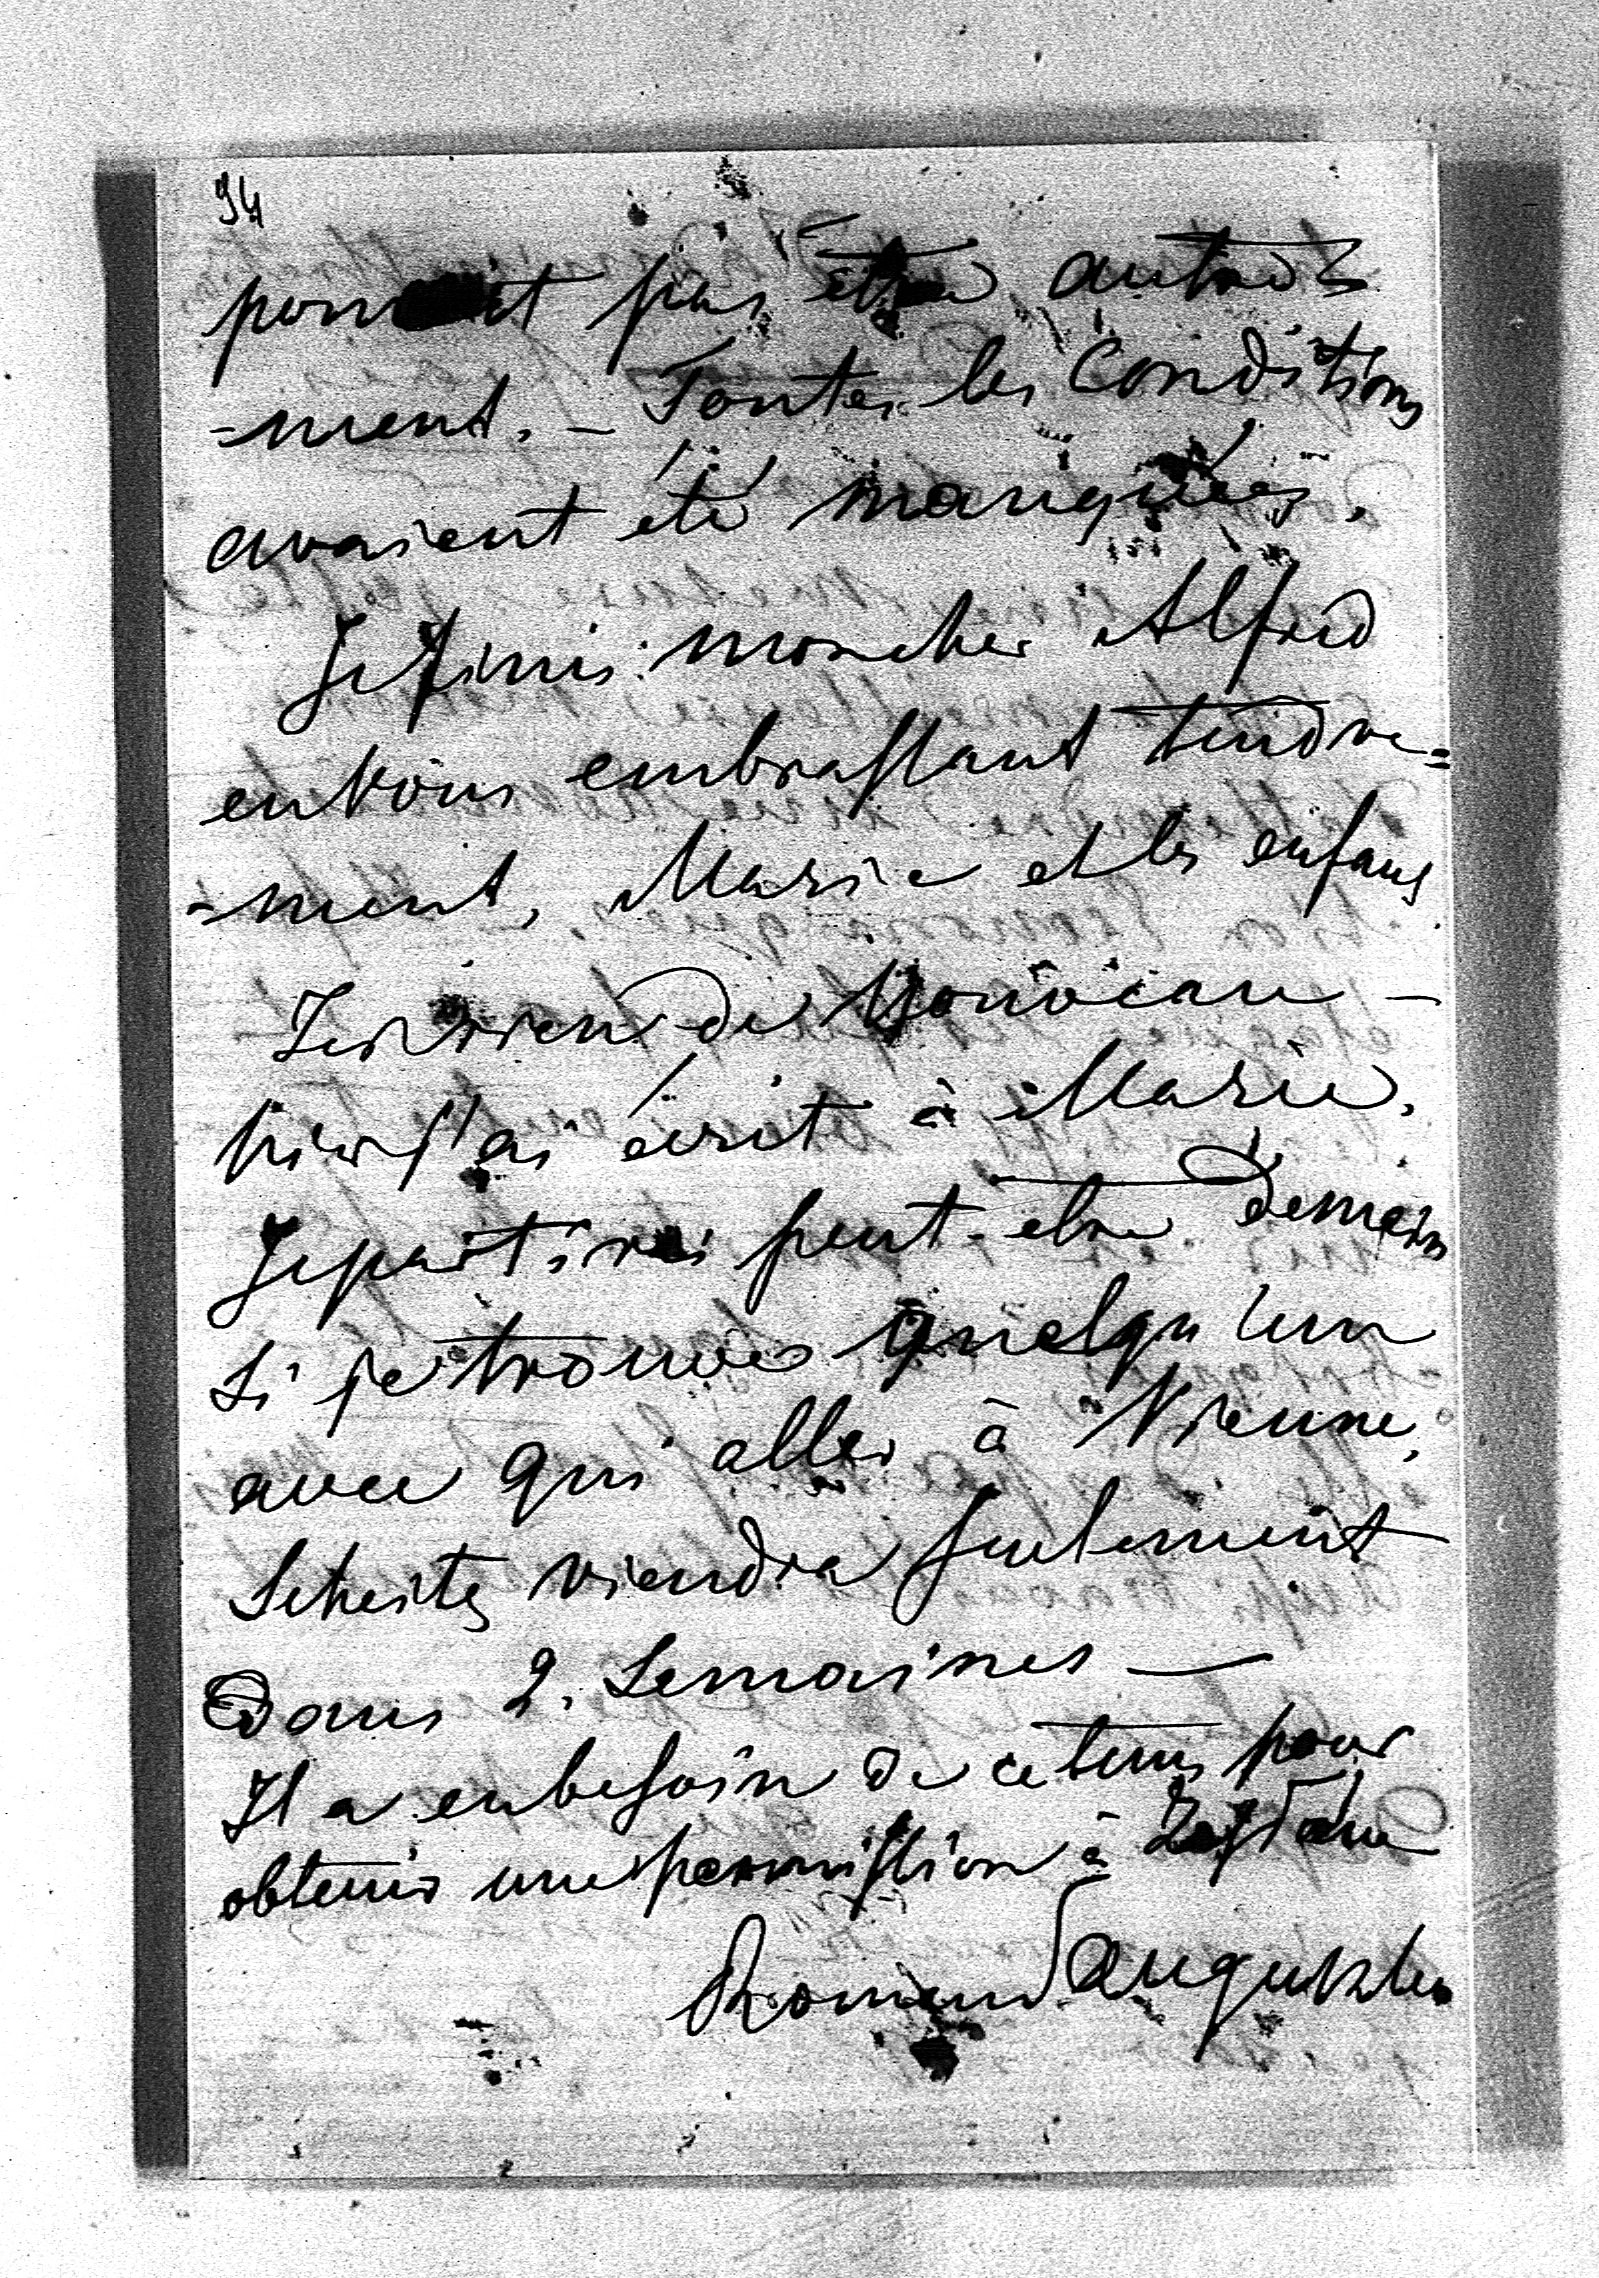 94
pouvait pas être autre
-ment. _ Toutes les conditions
avaient été manquées.
Je finis mon cher Alfred
en vous embrassant tendre=
=ment, Marie et les enfans
Je vien de
hier j'ai écrit à Marie.
Je partirai peut-être demain
si je trouve quelqu'un
avec qui aller à Vienne.
viendra seulement
Dans 2. Semaines —
Il a eu besoin de ce tems pour
obtenir une permission à
Romain